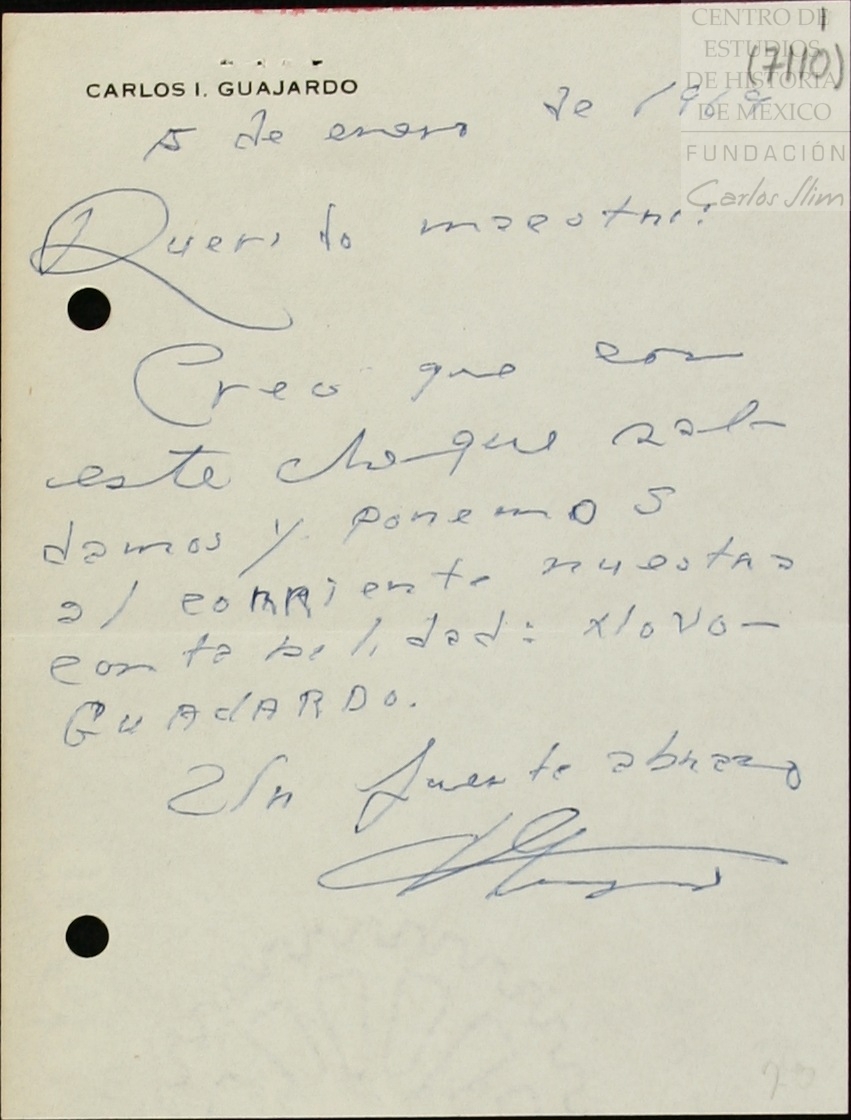 CENTRO DE
ESTUDIOS
DE HISTORIA
DE MÉXICO
FUNDACIÓN
Carlos Slim
1
(7110)
CARLOS I. GUAJARDO
5 de enero de 1969
Querido maestro:
Creo que con
este cheque sal-
damos y ponemos
al corriente nuestra
contabilidad: xlovo-
GUAJARDO.
Un fuerte abrazo